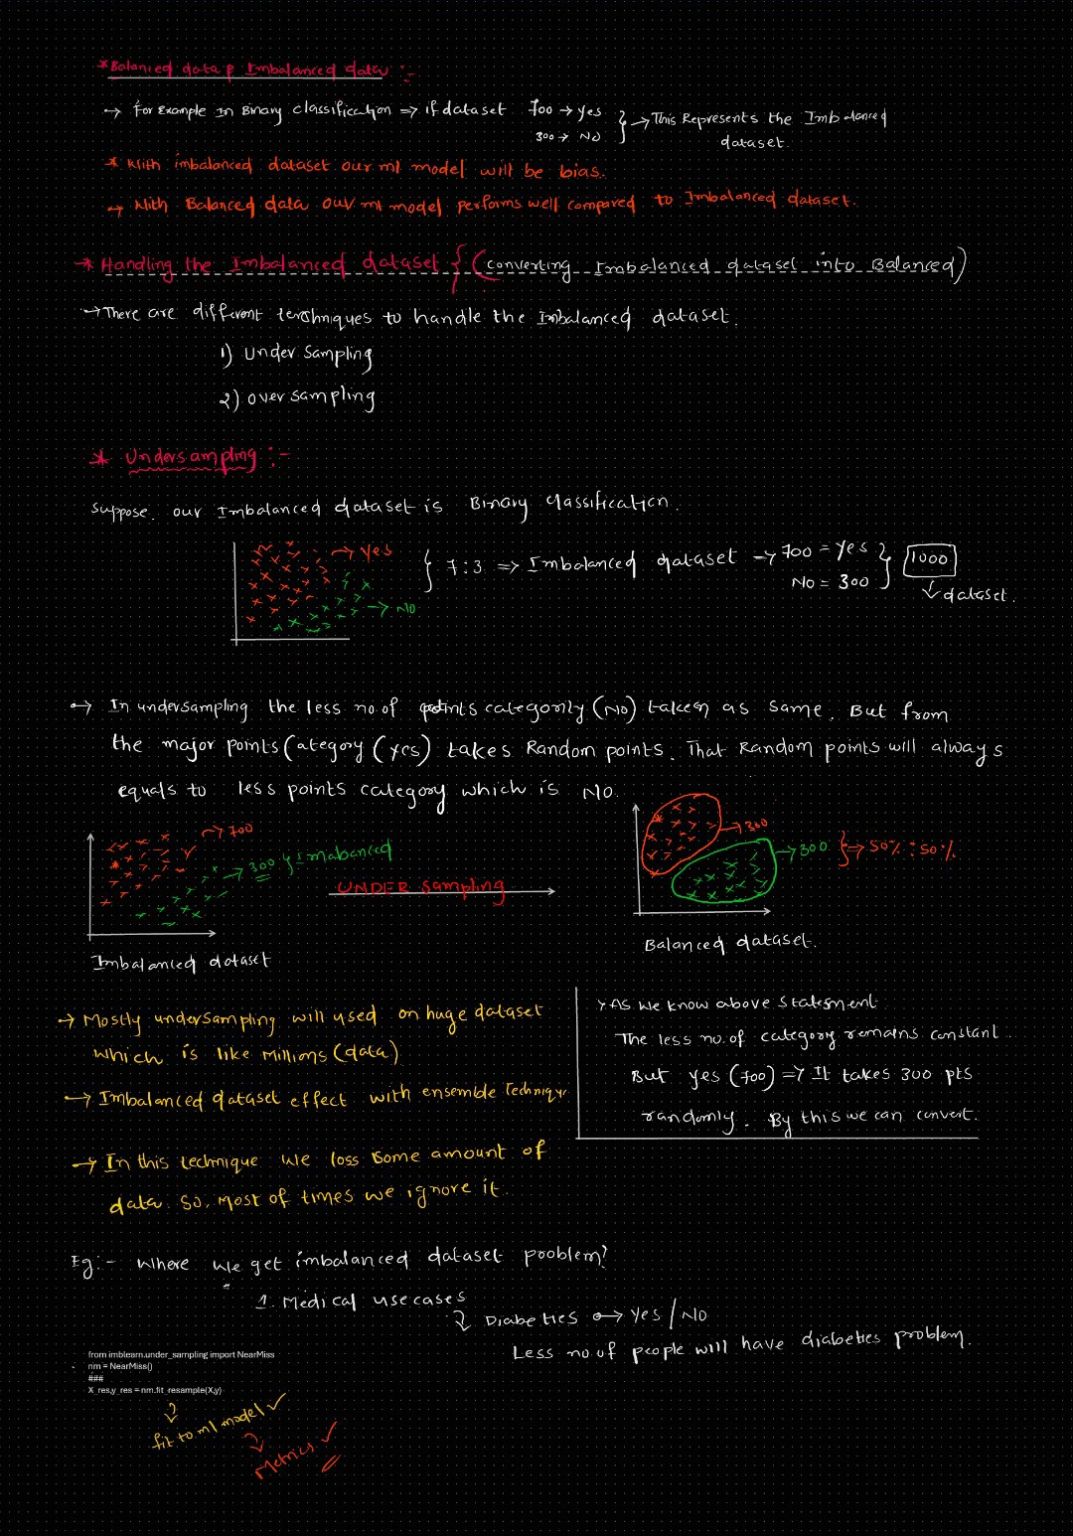 *Balanced data & Imbalanced data :-
→ For Example In Binary classification => if dataset 700 → Yes
300 → NO } → This Represents the Imbalanced
dataset.
* With imbalanced dataset our ml model will be bias.
→ With Balanced data our ml model performs well compared to Imbalanced dataset.
* Handling the Imbalanced dataset { (converting Imbalanced dataset into Balanced)
→ There are different techniques to handle the Imbalanced dataset.
1) Under Sampling
2) over sampling
* Undersampling :-
Suppose. our Imbalanced dataset is Binary classification.
→ Yes
→ NO
{ 7:3 => Imbalanced dataset → 700 = Yes
No = 300 } 1000
↓ dataset.
→ In undersampling the less no.of points categority (NO) taken as same. But from
the major points Category (Yes) takes Random points. That Random points will always
equals to less points category which is NO.
→ 700
→ 300 } Imabanced
UNDER sampling
→ 300
→ 300 } → 50% : 50%
Imbalanced dataset
Balanced dataset.
→ Mostly undersampling will used on huge dataset
which is like Millions (data)
→ Imbalanced dataset effect with ensemble Technique
→ In this technique we loss some amount of
data. So, most of times we ignore it.
→ As we know above Statement
The less no.of category remains constant.
But yes (700) => It takes 300 pts
randomly. By this we can convert.
Eg:- Where we get imbalanced dataset pooblem?
1. Medical usecases
→ Diabeties → Yes / NO
Less no.of people will have diabeties problem.
from imblearn.under_sampling import NearMiss
nm = NearMiss()
###
X_res,y_res = nm.fit_resample(X,y)
fit to ml model ✓
Metrics ✓